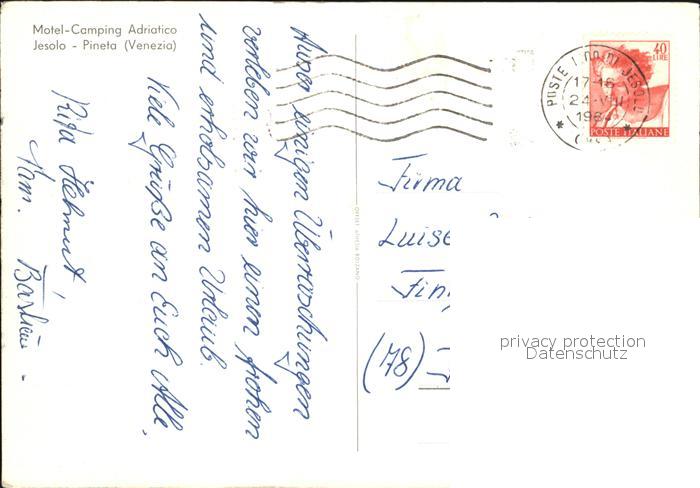 Motel-Camping Adriatico
Jesolo - Pineta (Venezia)
Außer einigen Überraschungen
verleben wir hier einen frohen
und erholsamen Urlaub.
Viele Grüße an Euch Alle,
Rita Helmut,
Firma
Luise
Fin
(78)
40
LIRE
POSTE ITALIANE
POSTE LIDO DI JESOLO
17-18
24-VIII
1964
OFFSET ATHESIA BOLZANO
privacy protection
Datenschutz